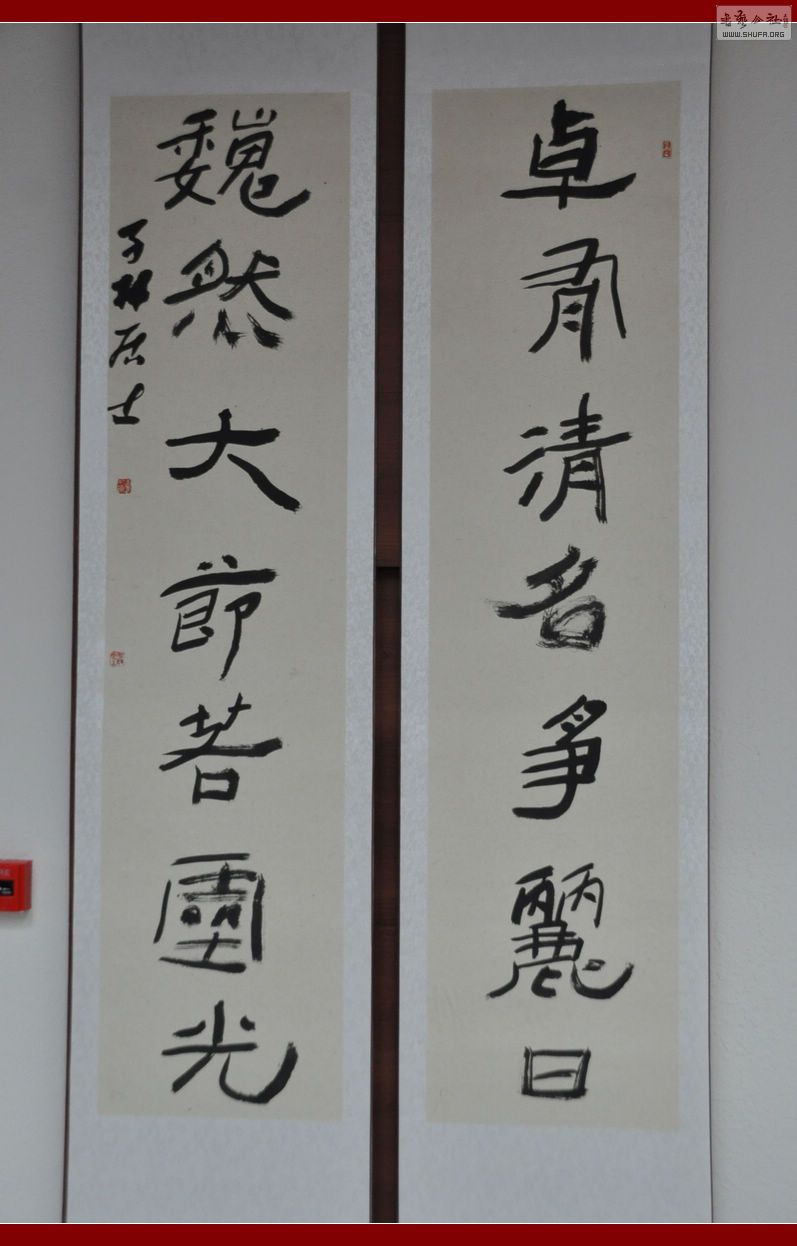 卓有清名争麗日
巍然大節若靈光
子林居士
书艺公社
WWW.SHUFA.ORG